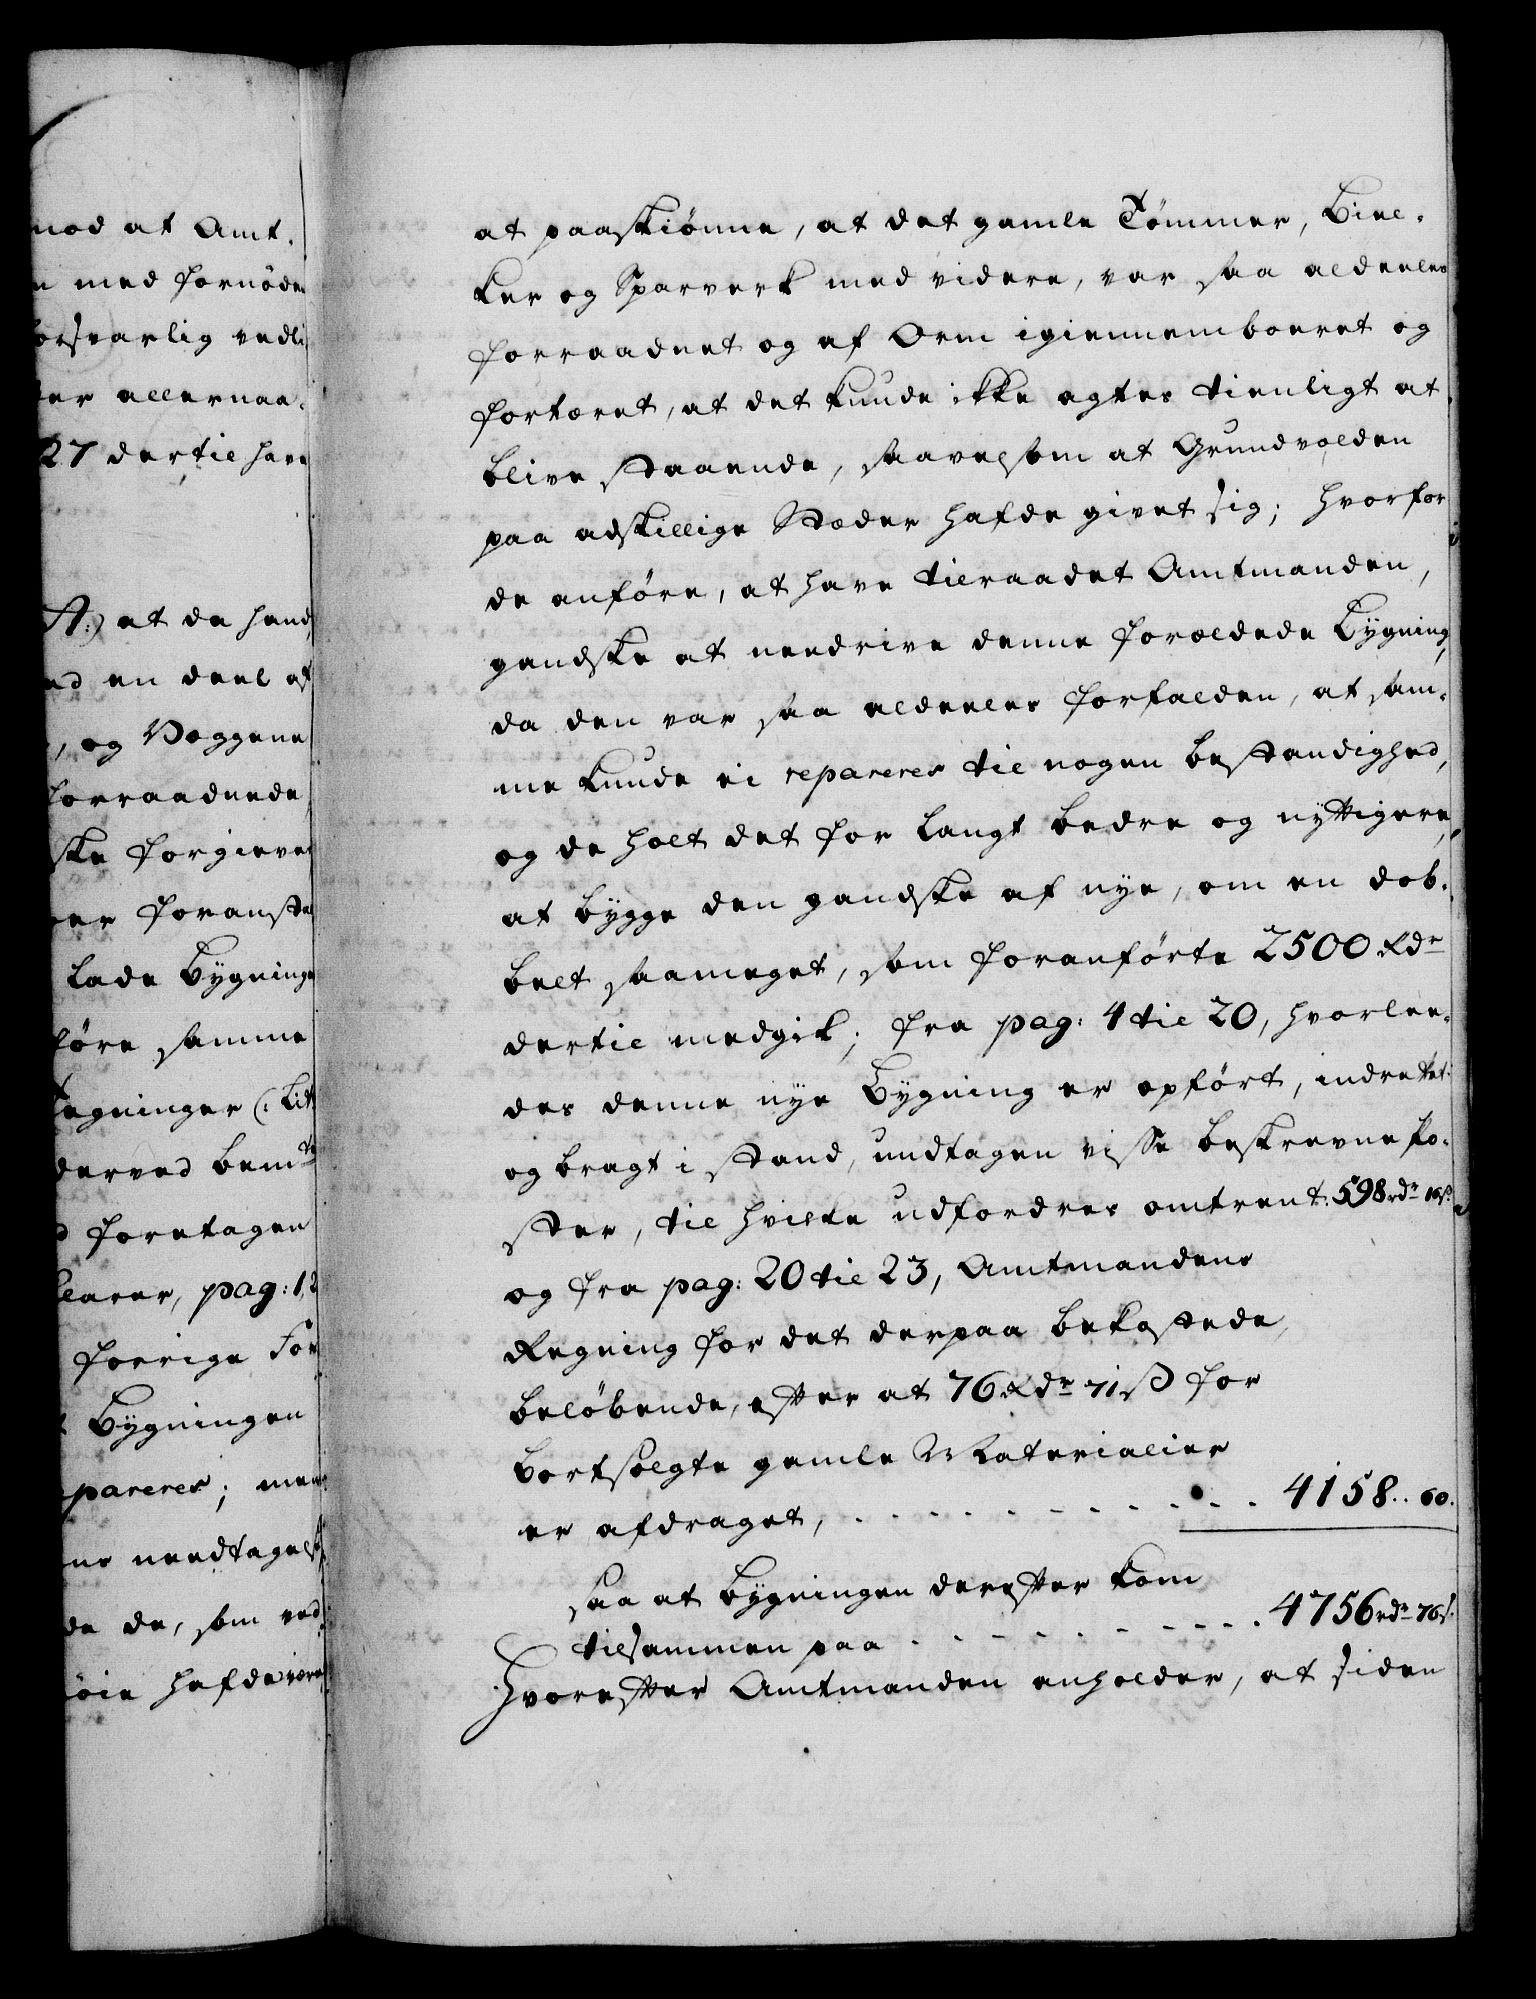 mod at Amt-
med fornöde
orsvarlig vedli
er allernaa-
27 dertil have
A:) at da hand
ed en deel af
, og Væggene
forraadnede
ske forgieves
er foransta
lade Bygninge
före samme
egninger (: Lit
derved bemte
foretagen
larer, pag: 1, 2
forrige For
Bygningen
pareres; men
needtagels
de de, som ved
öie hafde være
at paaskiönne, at det gamle Tömmer, Biel-
ker og Sparverk med videre, var saa aldeeles
forraadnet og af Orm igiennemboeret og
fortæret, at det kunde ikke agtes tienligt at
blive staaende, saavelsom at Grundvolden
paa adskillige Stæder hafde givet sig; hvorfor
de anföre, at have tilraadet Amtmanden,
gandske at needrive denne forældede Bÿgning,
da den var saa aldeeles forfalden, at sam-
me kunde ei repareres til nogen bestandighed,
og de holt det for langt bedre og nyttigere,
at bÿgge den gandske af nye, om en dob-
belt saameget, som foranförte 2500 Rdr
dertil medgik; fra pag: 4 til 20, hvorlee-
des denne nye Bÿgning er opfört, indrettet
og bragt i stand, undtagen visse beskrevne Po-
ster, til hvilke udfordres omtrent. 598 rdr 16 s.
og fra pag: 20 til 23, Amtmandens
Regning for det derpaa bekostede,
belöbende, efter at 76 Rdr 71 ß for
bortsolgte gamle Materialier
er afdraget, . . . . . . . . . . . 4158.. 60.
saa at bÿgningen derefter kom
tilsammen paa . . . . . . . . . 4756 rdr 76 s.
Hvorefter Amtmanden anholder, at siden